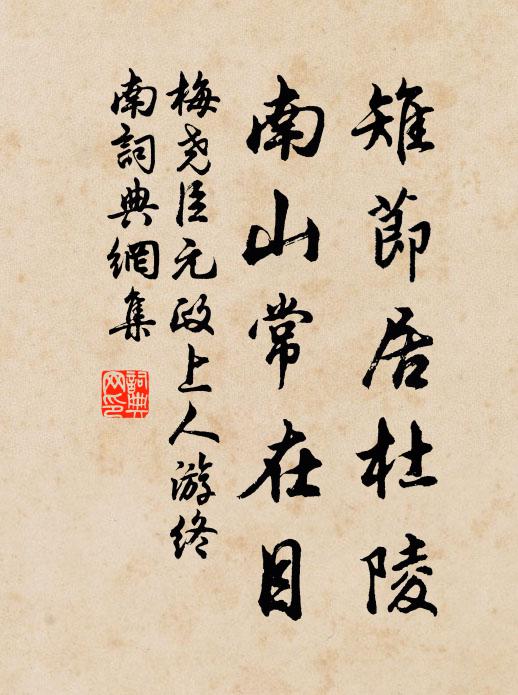 雉節居杜陵
南山常在目
梅堯臣元政上人游終
南詞典網集
詞典
网印